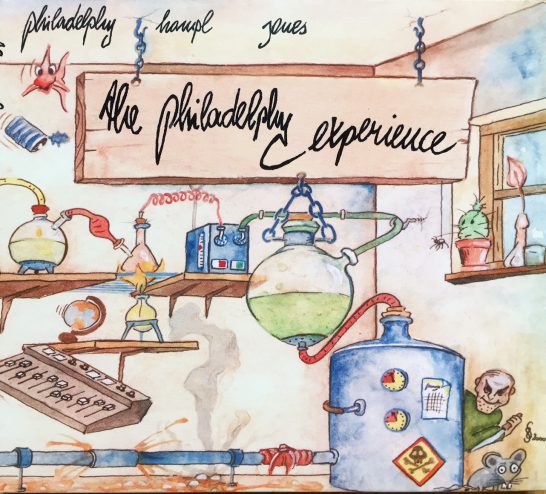 philadelphy hampl jones
the philadelphy
experience